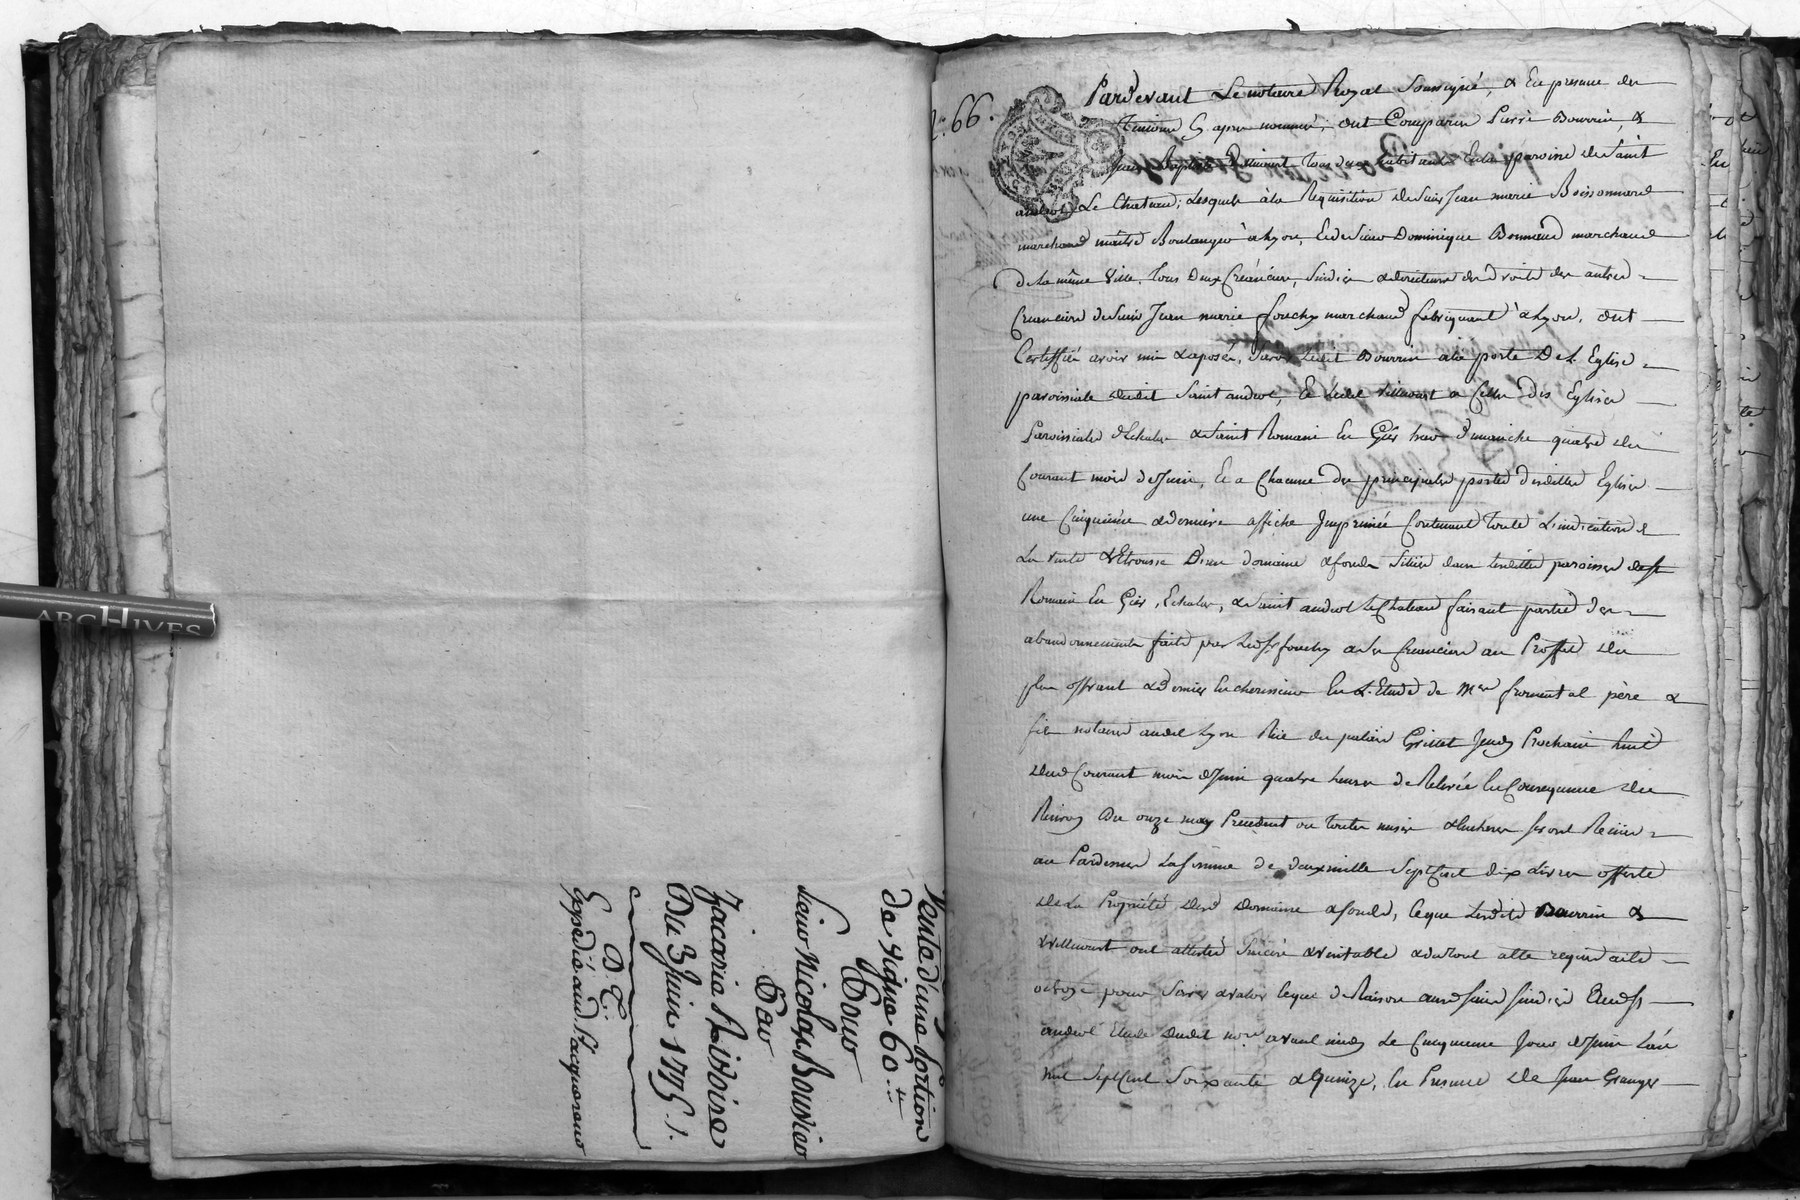 ARCHIVES
Vente d'une Portion
de Vigne 60 ₶
Pour
Sieur Nicolas Bouvier
Par
Zacarie Rivoire
Du 3 Juin 1775 /.
D. T.
Expedié aud. S.r acquereur
N.° 66.
Pardevant Le notaire Royal Soussigné, & En presence des
Temoins Cy apres nommés, ont Comparu Pierre Bourrin, &
Tous deux habitants En la paroisse de Saint
andeol Le Chateau; Lesquels à la Requisition de Sieur Jean marie Boissonnard
marchand maître Boulanger à Lyon, Et de Sieur Dominique Bonnard marchand
de la même Ville, Tous deux Créanciers, Sindics & directeurs des droits des autres
Creanciers de Sieur Jean marie fouchy marchand fabriquant à Lyon, ont
Certiffié avoir mis & aposés, Savoir Ledit Bourrin à la porte De L'Eglise
paroissiale dudit Saint andeol, Et Ledit Villecourt a Celles des Eglises
Paroissiales d'Echalas & Saint Romain En Giés hier dimanche quatre du
Courant mois de Juin, Et a Chacune des principales portes desdittes Eglises
une Cinquième & derniere affiche Imprimée Contenant toute L'indication de
La Vente & Etrousse D'un domaine & fonds Situés dans Lesdittes paroisses de St
Romain En Giés, Echalas, & Saint andeol Le Chateau faisant partie des
abandonnements faits par Led. Sr fouchy a Ses Creanciers au Proffit du
plus offrant & Dernier Encherisseur En L'Etude de Mes fromental père &
fils notaires audit Lyon Rue du palais Grillet Jeudy Prochain huit
dud Courant mois de Juin quatre heures de Relevée En Consequence du
Renvoy Du onze may Precedent ou toutes mises & Encheres Seront Recües
au Pardessus La Somme de deux mille Sept Cent dix Livres offerte
de La Proprieté dud Domaine & fonds, Ceque Lesdits Bourrin &
Villecourt ont attesté Sincere & Veritable & du tout acte requis a été
octroyé pour Servir & valoir Ceque de Raison auxd Sieurs Sindics
andeol Etude dudit nore avant midy Le Cinquieme Jour de Juin L'an
mil Sept Cent Soixante & Quinze, En Presence de Jean Granger